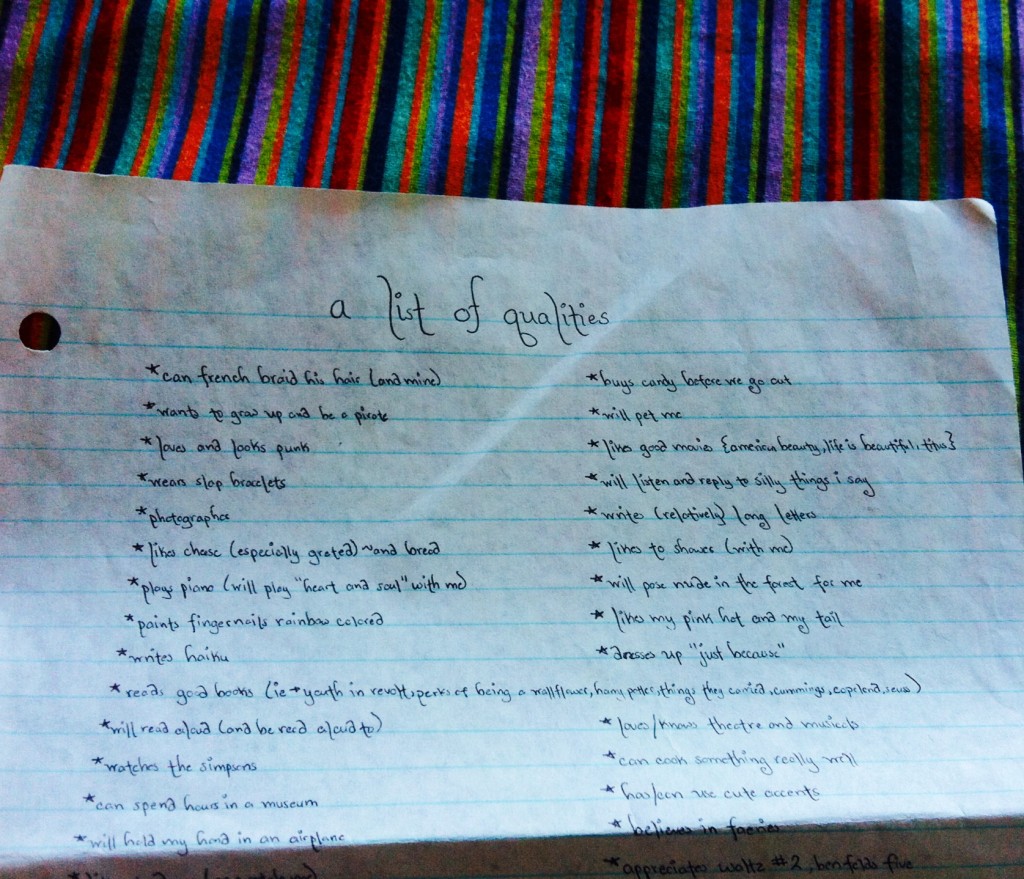 a list of qualities
*can french braid his hair (and mine)
*wants to grow up and be a pirate
*loves and looks punk
*wears slap bracelets
*photographer
*likes cheese (especially grated) ~and bread
*plays piano (will play "heart and soul" with me)
*paints fingernails rainbow colored
*writes haiku
*reads good books (ie→youth in revolt, perks of being a wallflower, harry potter, things they carried, cummings, copeland, seuss)
*will read aloud (and be read aloud to)
*watches the simpsons
*can spend hours in a museum
*will hold my hand in an airplane
*buys candy before we go out
*will pet me
*likes good movies {american beauty, life is beautiful, titus}
*will listen and reply to silly things i say
*writes (relatively) long letters
*likes to shower (with me)
*will pose nude in the forest for me
*likes my pink hat and my tail
*dresses up "just because"
*loves/knows theatre and musicals
*can cook something really well
*has/can use cute accents
*believes in faeries
*appreciates waltz #2, ben folds five